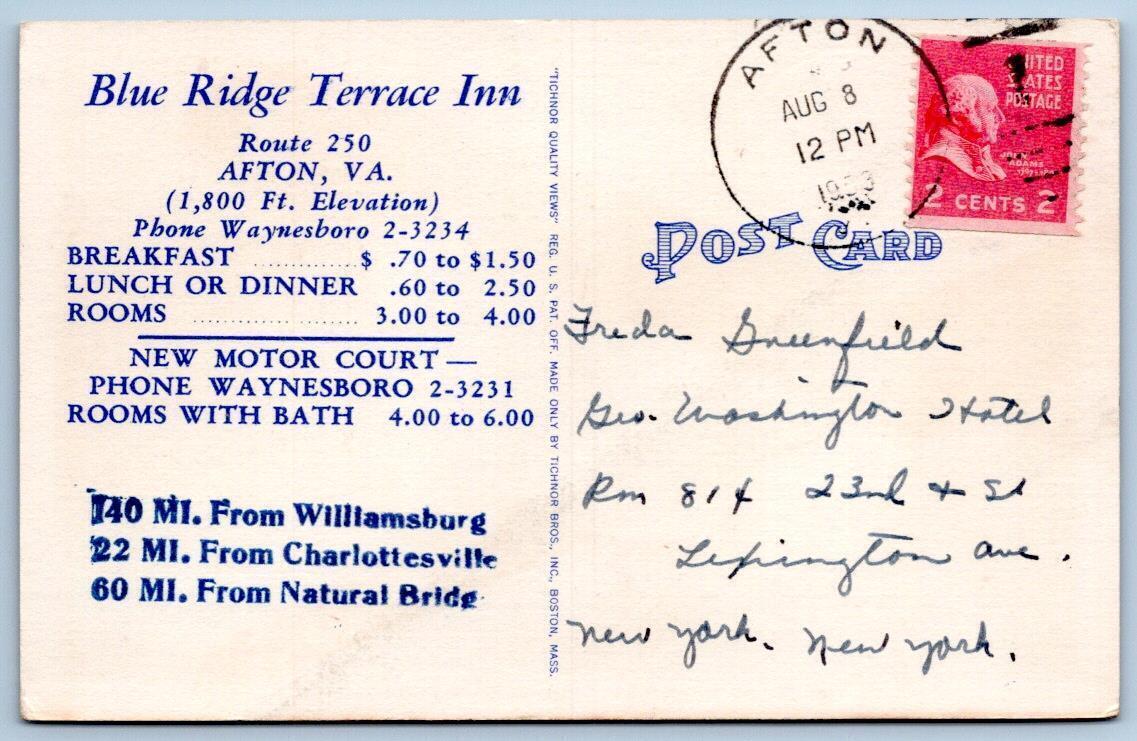 Blue Ridge Terrace Inn
Route 250
AFTON, VA.
(1,800 Ft. Elevation)
Phone Waynesboro 2-3234
BREAKFAST ............. $ .70 to $1.50
LUNCH OR DINNER .60 to 2.50
ROOMS ..................... 3.00 to 4.00
NEW MOTOR COURT —
PHONE WAYNESBORO 2-3231
ROOMS WITH BATH 4.00 to 6.00
140 MI. From Williamsburg
22 MI. From Charlottesville
60 MI. From Natural Bridge
"TICHNOR QUALITY VIEWS" REG. U. S. PAT. OFF. MADE ONLY BY TICHNOR BROS., INC., BOSTON, MASS.
AFTON
AUG 8
12 PM
1953
UNITED
STATES
POSTAGE
JOHN
ADAMS
2 CENTS 2
POST CARD
Freda Greenfield
Geo. Washington Hotel
Rm 814 23rd + St
Lexington ave.
New york. New york.